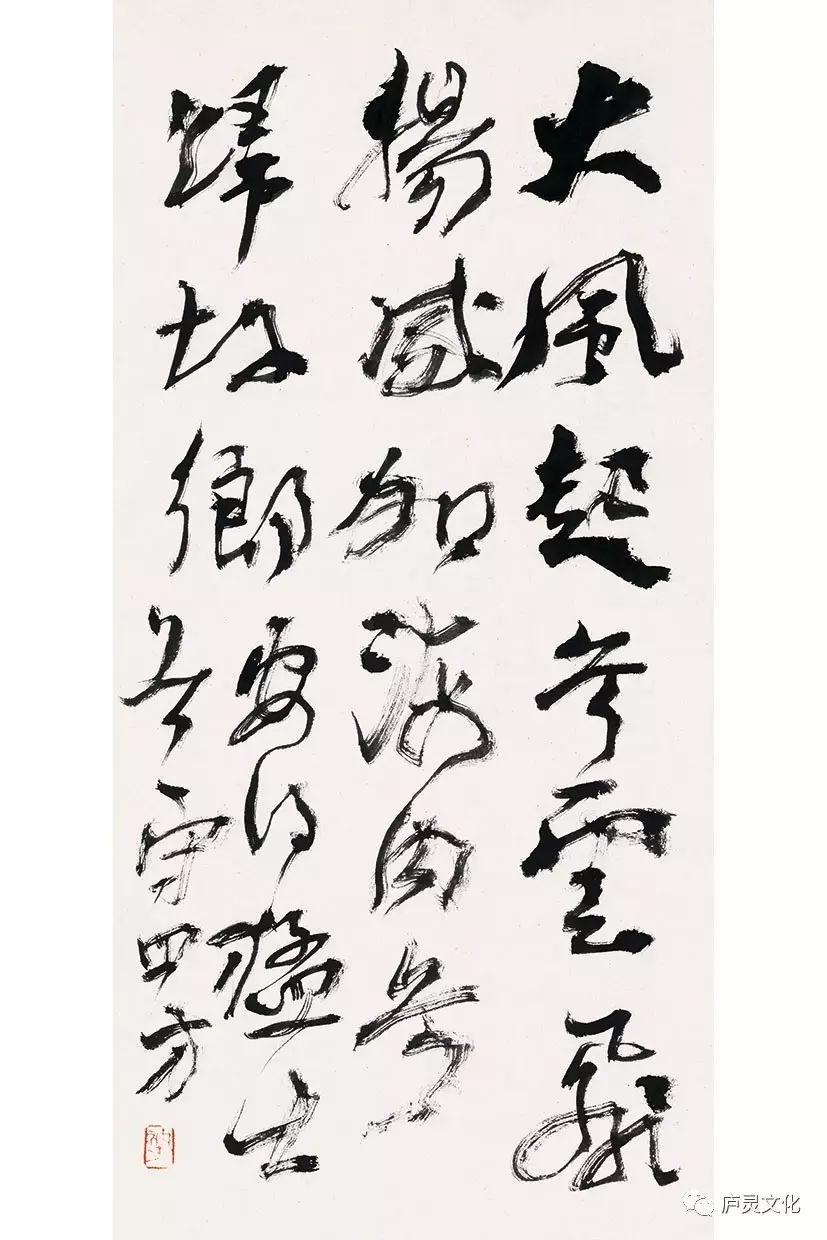 大風起兮雲飛
揚威加海内兮
歸故鄉安得猛士
兮守四方
庐灵文化